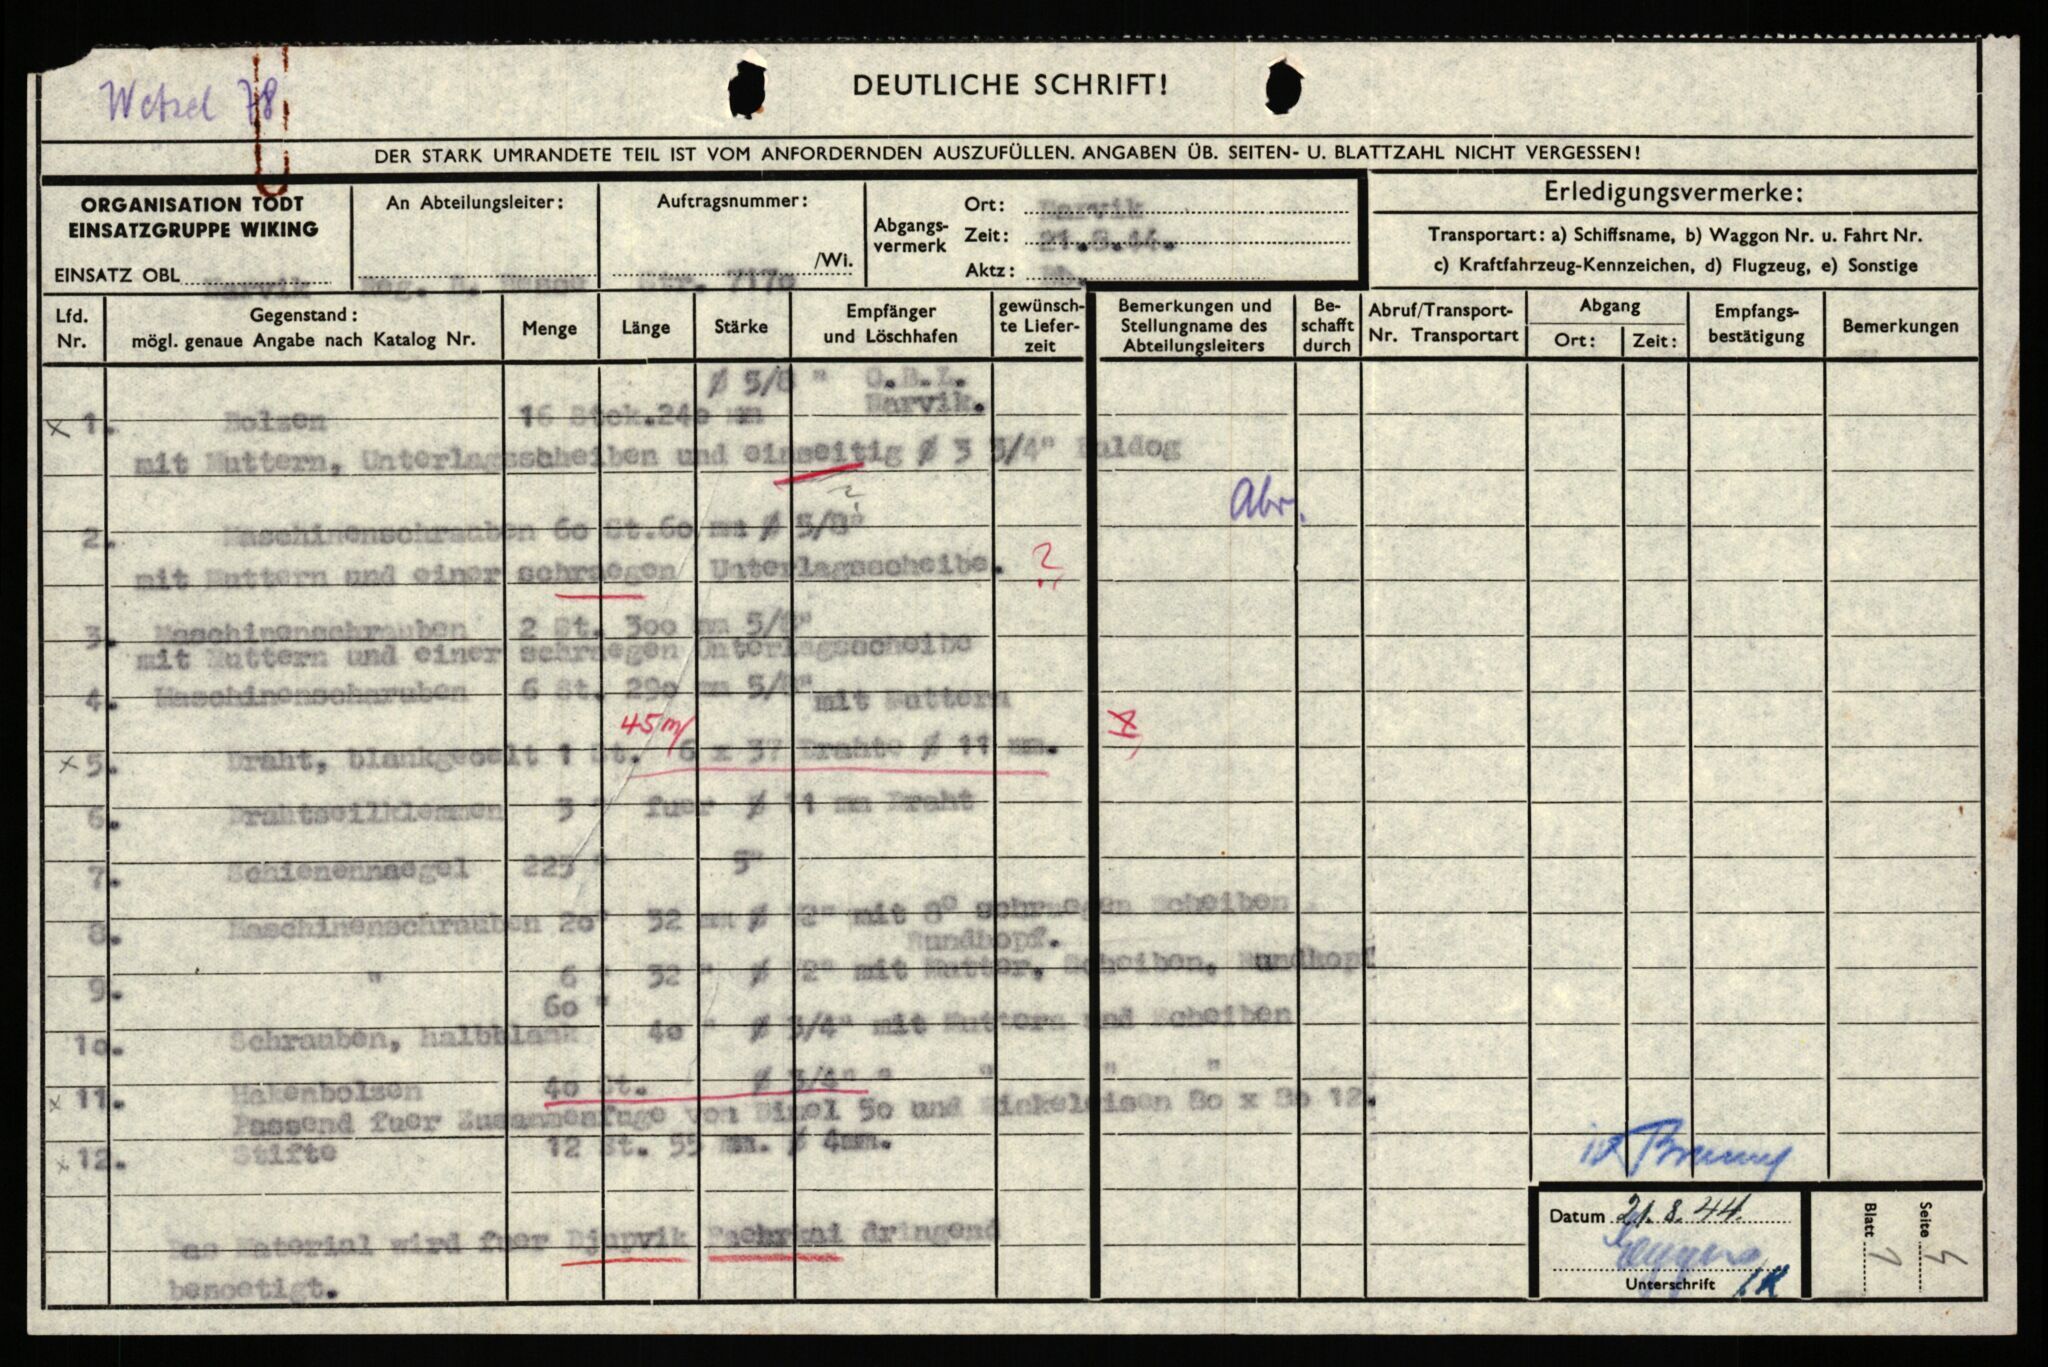 Wetzel 78
DEUTLICHE SCHRIFT!
DER STARK UMRANDETE TEIL IST VOM ANFORDERNDEN AUSZUFÜLLEN. ANGABEN ÜB. SEITEN- U. BLATTZAHL NICHT VERGESSEN!
ORGANISATION TODT
EINSATZGRUPPE WIKING
EINSATZ OBL Narvik
An Abteilungsleiter:
Auftragsnummer:
/Wi.
Str. 7170
Abgangs-
vermerk
Ort: Narvik
Zeit: 21.8.44.
Aktz:
Erledigungsvermerke:
Transportart: a) Schiffsname, b) Waggon Nr. u. Fahrt Nr.
c) Kraftfahrzeug-Kennzeichen, d) Flugzeug, e) Sonstige
Lfd.
Nr.
Gegenstand:
mögl. genaue Angabe nach Katalog Nr.
Menge
Länge
Stärke
Empfänger
und Löschhafen
gewünsch-
te Liefer-
zeit
Bemerkungen und
Stellungname des
Abteilungsleiters
Be-
schafft
durch
Abruf/Transport-
Nr. Transportart
Abgang
Ort:
Zeit:
Empfangs-
bestätigung
Bemerkungen
ø 5/8 " O.B.L.
x 1. Bolzen 16 Stck. 240 mm Narvik.
mit Muttern, Unterlagsscheiben und einseitig ø 3 3/4" Buldog
?
Abr.
2. Maschinenschrauben 60 St. 60 mm ø 5/8"
mit Muttern und einer schraegen Unterlagsscheibe. ?
3. Maschinenschrauben 2 St. 300 mm 5/8"
mit Muttern und einer schraegen Unterlagsscheibe
4. Maschinenscharuben 6 St. 290 mm 5/8" mit Muttern
45 m/
x
x 5. Draht, blankgeoelt 1 St. 6 x 37 Drahte ø 11 mm.
6. Drahtseilklemmen 3 " fuer ø 11 mm Draht
7. Schienennaegel 225 " 5"
8. Maschinenschrauben 20 " 32 mm ø 1/2" mit 8° schraegen Scheiben
Rundkopf.
9. " 6 " 32 " ø 1/2" mit Mutter, Scheiben, Rundkopf
60 "
10. Schrauben, halbblank 40 " ø 3/4" mit Muttern und Scheiben
x 11. Hakenbolzen 40 St. ø 3/4" " " " "
Passend fuer Zusammenfuge von Dinel 50 und Winkeleisen 80 x 80 12.
x 12. Stifte 12 St. 55 mm. ø 4mm.
Das Material wird fuer Djupvik Faehrkai dringend
benoetigt.
Datum 21.8.44.
Unterschrift
Seite 4
Blatt 1